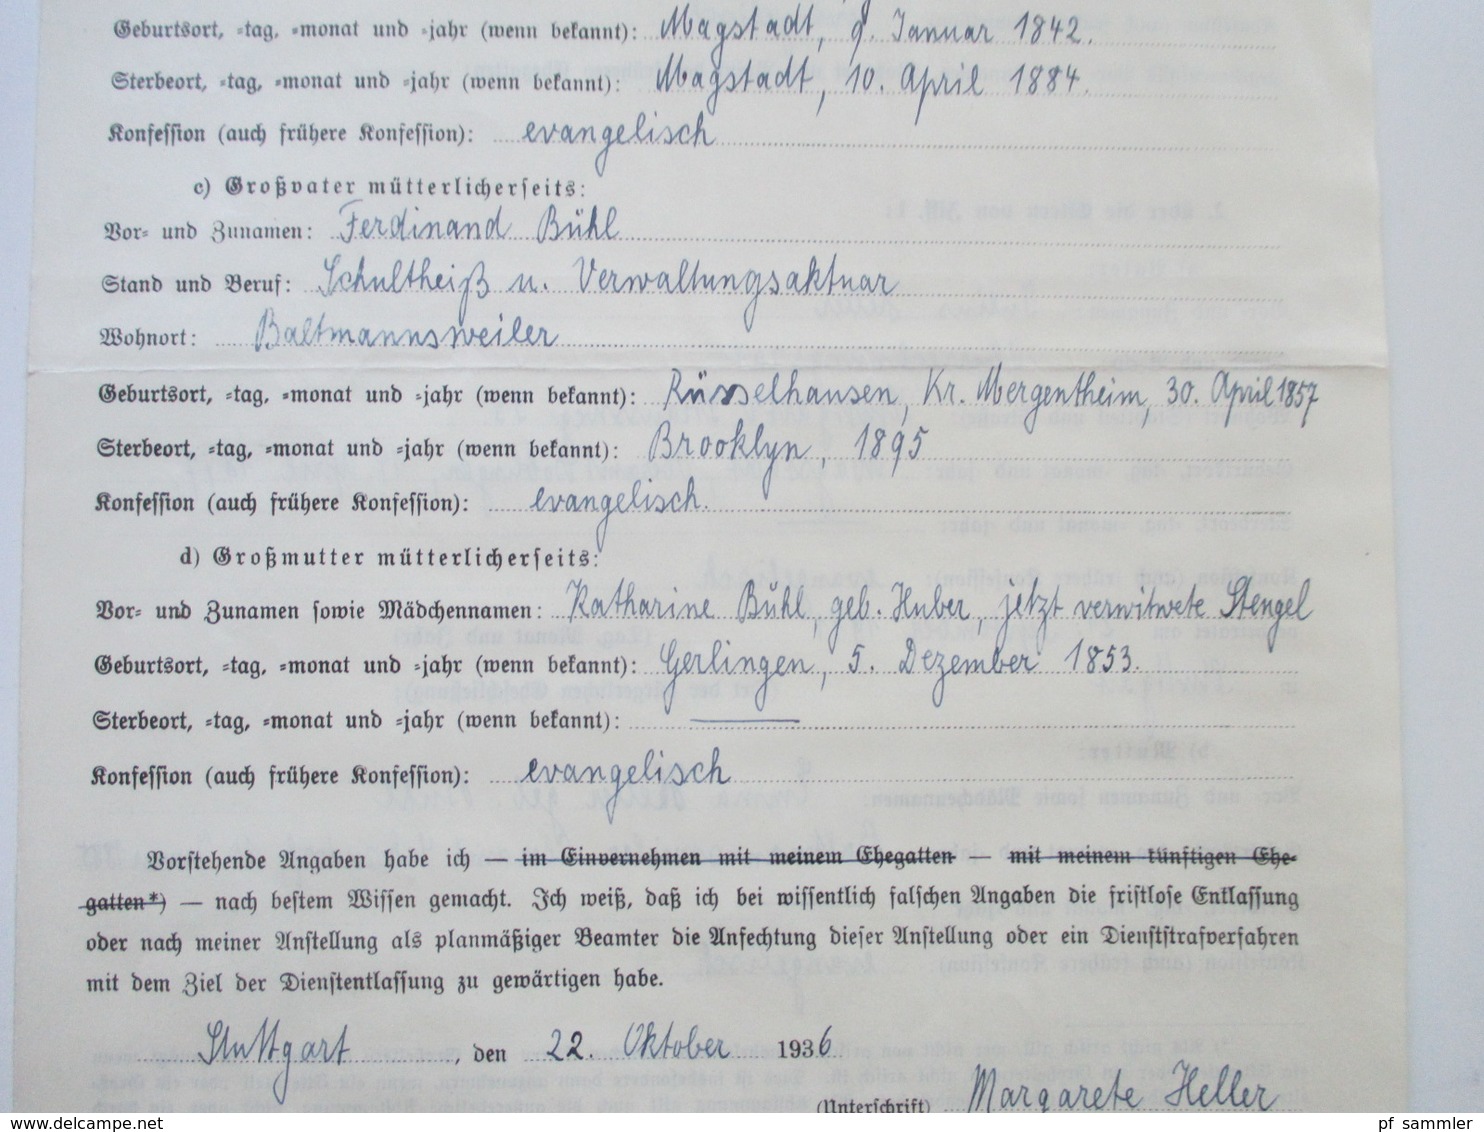 Geburtsort, =tag, =monat und =jahr (wenn bekannt): Magstadt, 9. Januar 1842.
Sterbeort, =tag, =monat und =jahr (wenn bekannt): Magstadt, 10. April 1884.
Konfession (auch frühere Konfession): evangelisch
c) Großvater mütterlicherseits:
Vor= und Zunamen: Ferdinand Bühl
Stand und Beruf: Schultheiß u. Verwaltungsaktuar
Wohnort: Baltmannsweiler
Geburtsort, =tag, =monat und =jahr (wenn bekannt): Rüsselhausen, Kr. Mergentheim, 30. April 1857
Sterbeort, =tag, =monat und =jahr (wenn bekannt): Brooklyn, 1895
Konfession (auch frühere Konfession): evangelisch.
d) Großmutter mütterlicherseits:
Vor= und Zunamen sowie Mädchennamen: Katharine Bühl, geb. Huber, jetzt verwitwete Stengel
Geburtsort, =tag, =monat und =jahr (wenn bekannt): Gerlingen, 5. Dezember 1853.
Sterbeort, =tag, =monat und =jahr (wenn bekannt): —
Konfession (auch frühere Konfession): evangelisch
Vorstehende Angaben habe ich — im Einvernehmen mit meinem Ehegatten — mit meinem künftigen Ehe=
gatten*) — nach bestem Wissen gemacht. Ich weiß, daß ich bei wissentlich falschen Angaben die fristlose Entlassung
oder nach meiner Anstellung als planmäßiger Beamter die Anfechtung dieser Anstellung oder ein Dienststrafverfahren
mit dem Ziel der Dienstentlassung zu gewärtigen habe.
Stuttgart, den 22. Oktober 1936
(Unterschrift) Margarete Heller
www.delcampe.net
pf_sammler